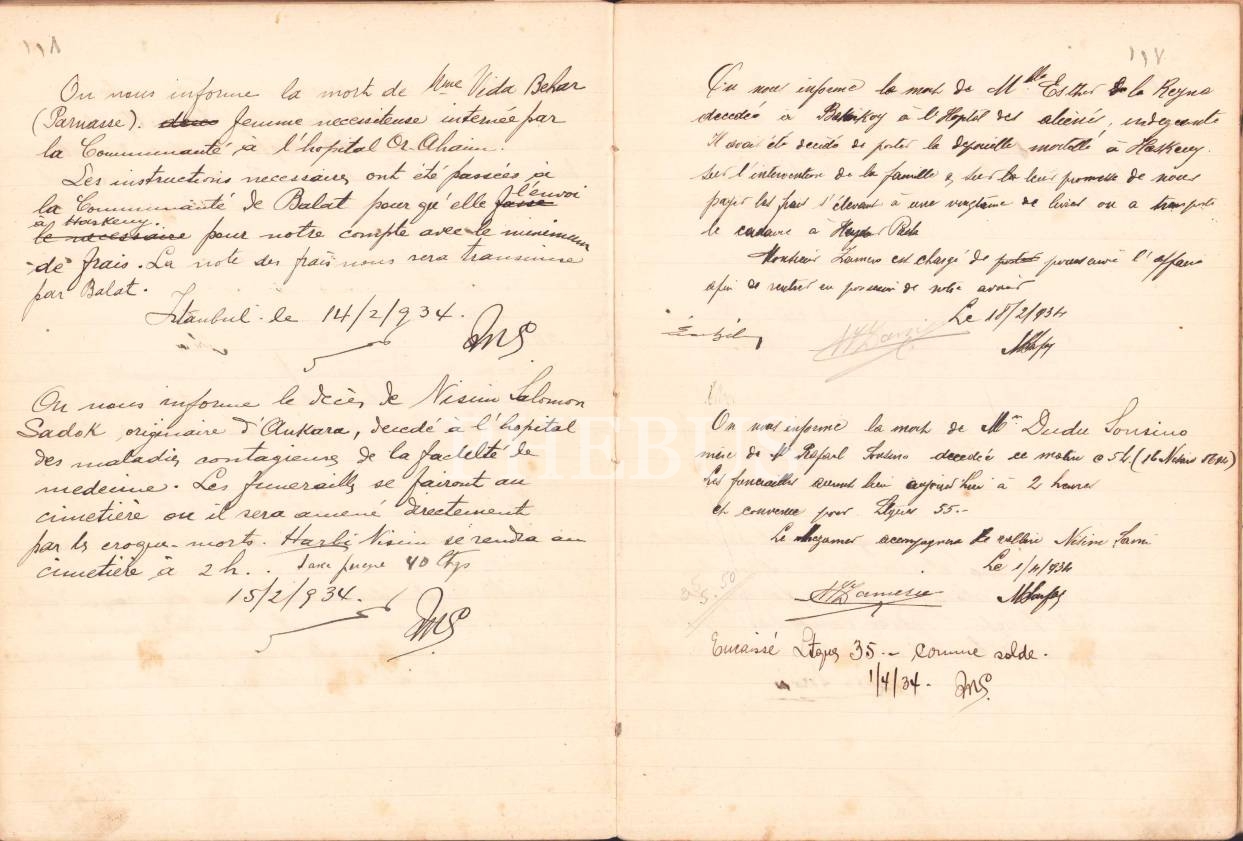 ١١٨
On nous informe la mort de Mme Vida Behar
(Parnasse). femme necessiteuse internée par
la Communauté, à l'hopital Or-Ahaim.
Les instructions necessaires ont été passées à
la Communauté de Balat pour qu'elle fasse l'envoi
à Haskeuy.
le nécessaire pour notre compte avec le minimum
de frais. La note des frais nous sera transmise
par Balat.
Istanbul le 14/2/934.
On nous informe le décès de Nisim Salomon
Sadok, originaire d'Ankara, decedé à l'hopital
des maladies contagieuses de la faculté de
medecine. Les funerailles se fairont au
cimetière ou il sera amené directement
par les croque-morts. Harbi Nisim se rendra au
cimetière à 2 h. Taxe perçue 40 Ltqs
15/2/934.
١١٧
On nous informe la mort de Mlle Esther de la Reyna
decedée à Bakirkoy à l'Hopital des aliénés, indegeante
Il avait été decidé de porter la depouille mortelle à Haskeuy.
Sur l'intervention de la famille & sur leur promesse de nous
payer les frais s'élevant à une vingtaine de livres on a transporté
le cadavre à Haydar Pacha
Monsieur est chargé de poursuivre l'affaire
afin de rentrer en possession de notre avoir
Le 18/2/934
On nous informe la mort de Me Dudu Sonsino
mère de Mr Rafael Sonsino decedée ce matin à 5h (16 Nisan 5694)
Les funerailles auront lieu aujourd'hui à 2 heures
et convenue pour Ltques 55.-
Le accompagnera le rabbin Nisim
Le 1/4/934
55.50
Encaissé Ltques 35.- comme solde.
1/4/34-
PHEBUS